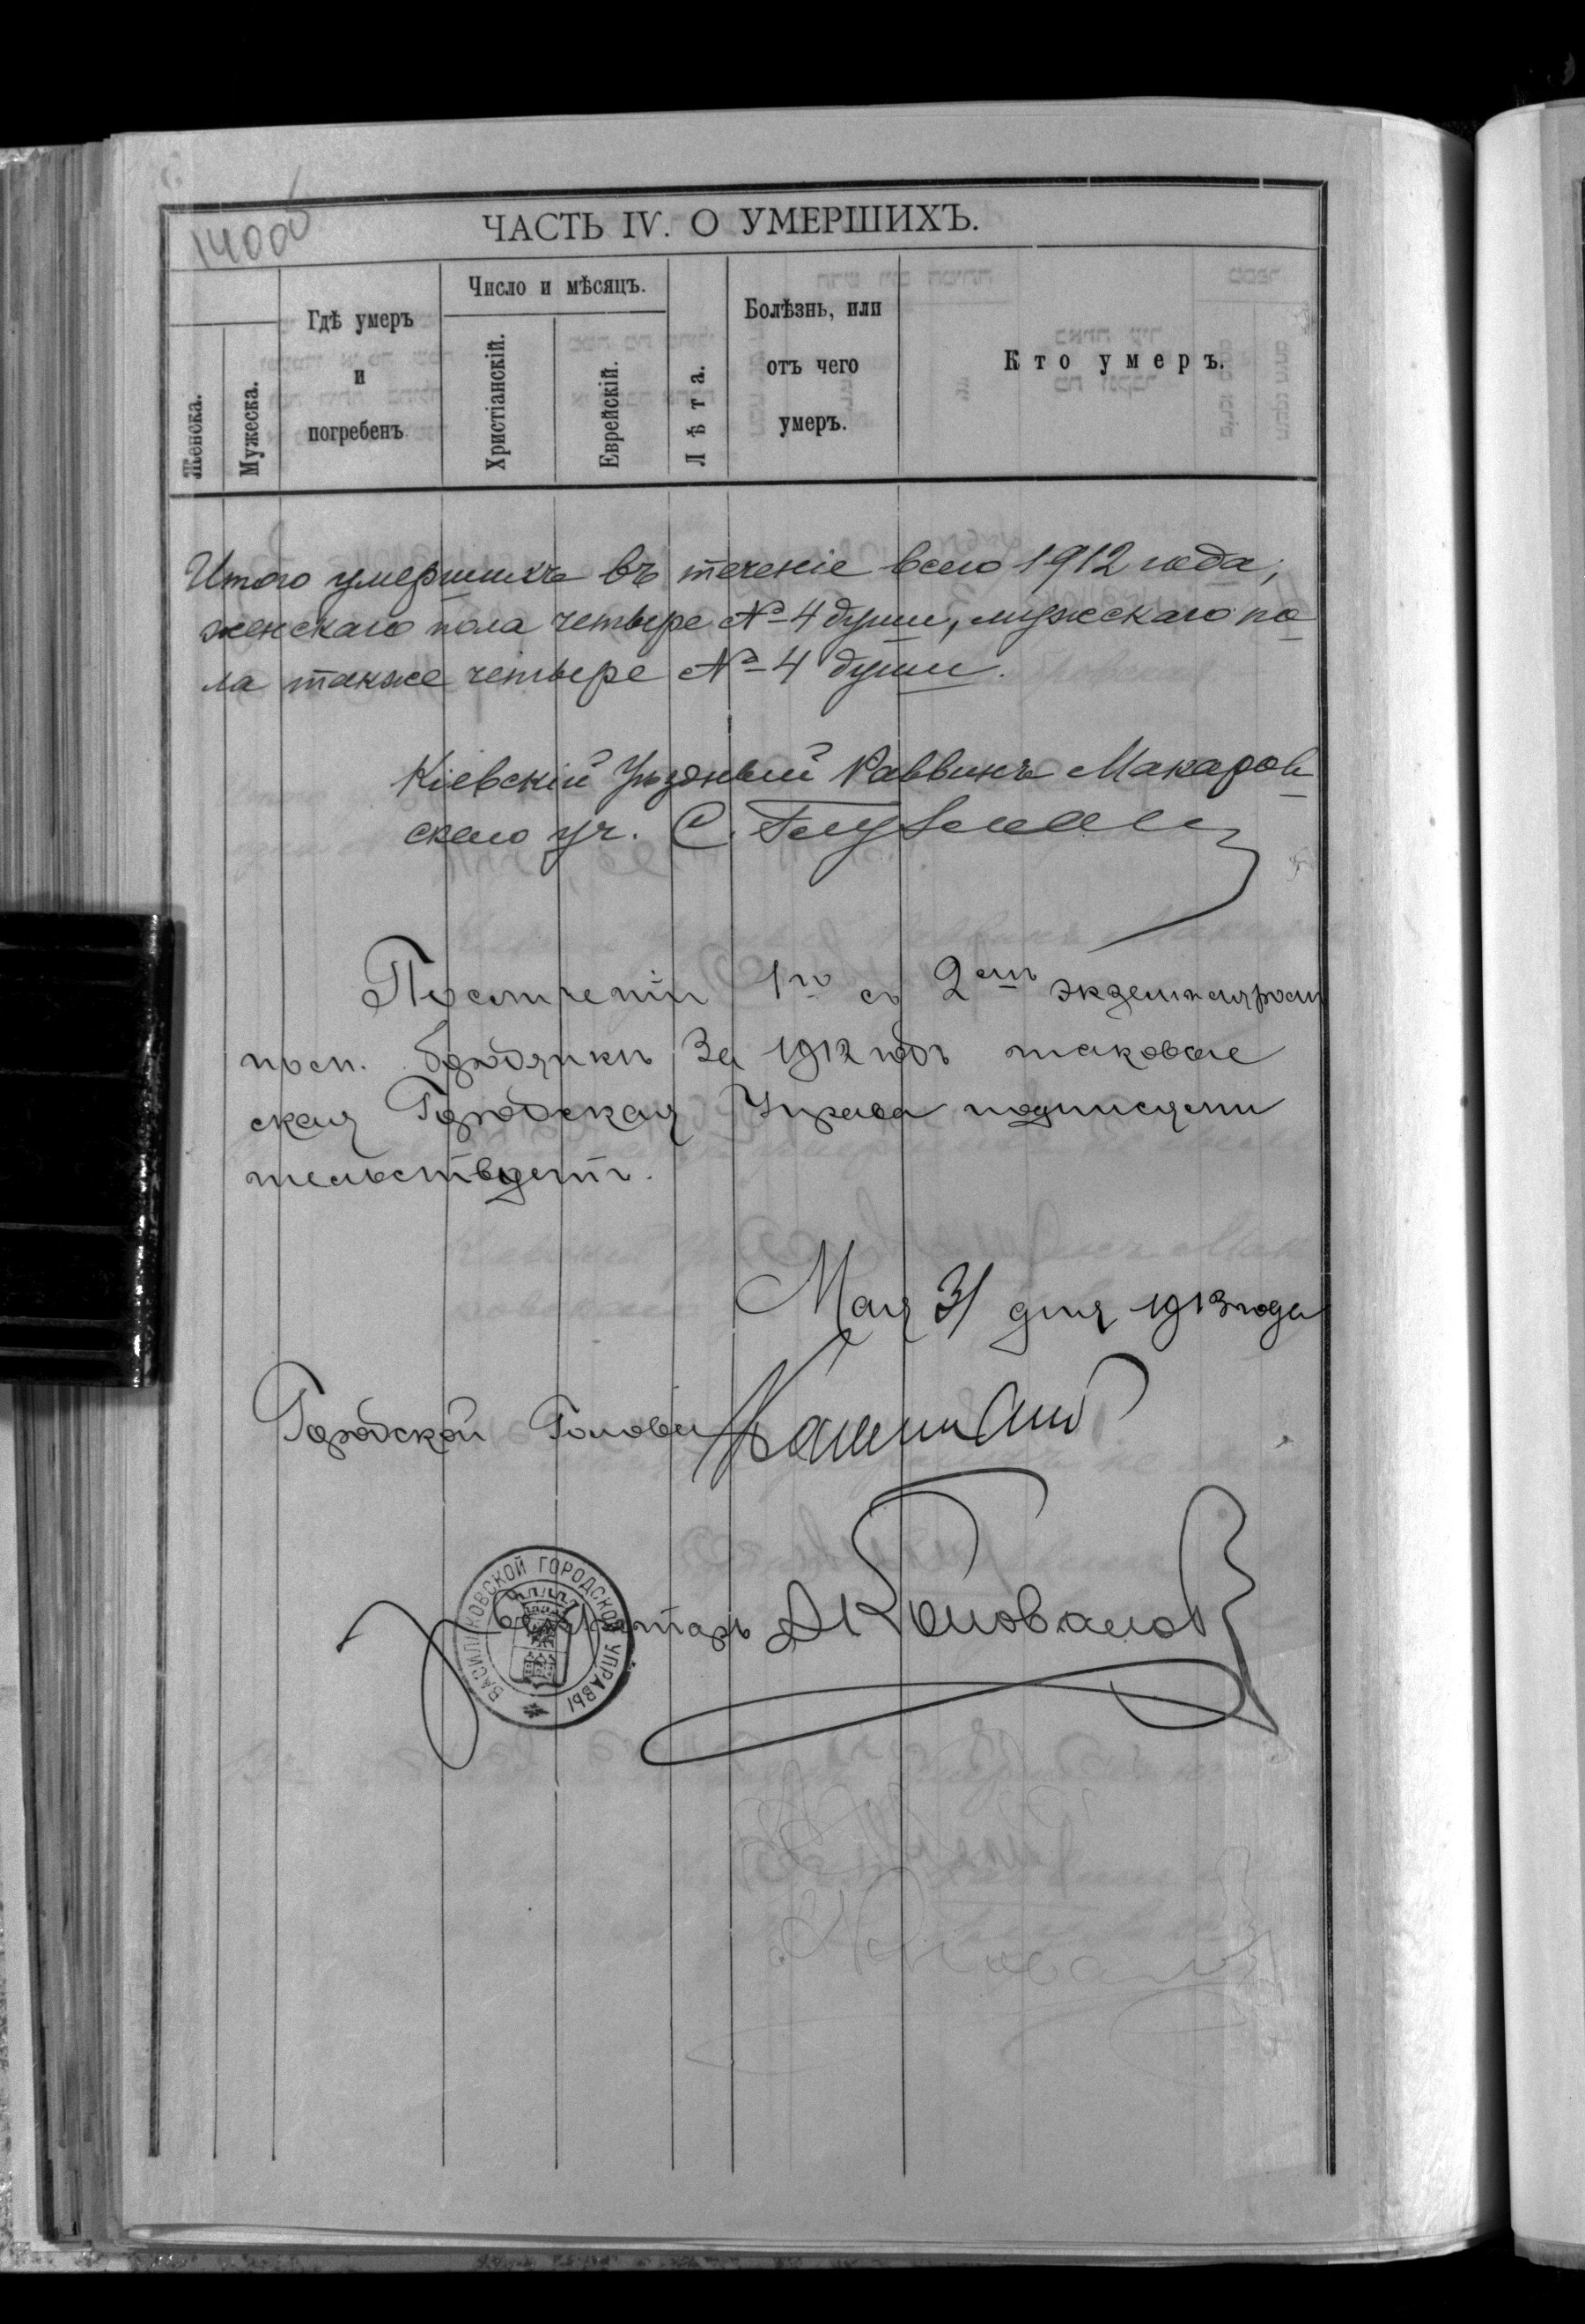 14000
ЧАСТЬ IV. О УМЕРШИХЪ.
Женска.
Мужеска.
Гдѣ умеръ
и
погребенъ
Число и мѣсяцъ.
Христіанскій.
Еврейскій.
Лѣта.
Болѣзнь, или
отъ чего
умеръ.
Кто умеръ.
Итого умершихъ въ теченіе всего 1912 года,
женскаго пола четыре № 4 души, мужескаго по
ла также четыре № 4 души.
Кіевскій Уѣздный Раввинъ Макаров
скаго уч. С.
По сличеніи 1го съ 2ымъ экземпляромъ
по м. Бородянкѣ За 1912 годъ таковые
ская Городская Управа подписями
тельствуетъ.
Мая 31 дня 1913 года
Городской Голова
Секретарь АКоновалов
ВАСИЛЬКОВСКОЙ ГОРОДСКОЙ УПРАВЫ